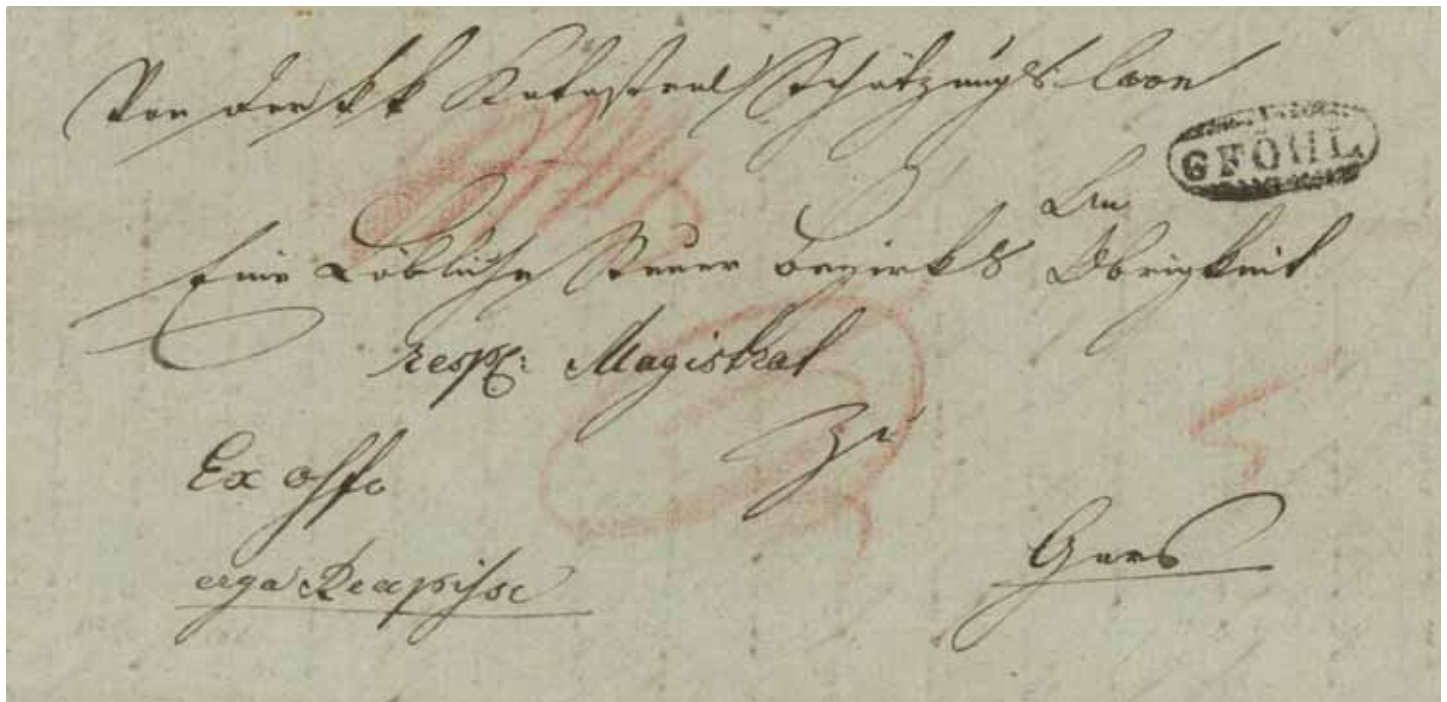 Von der k k Katastral Schätzungs Com
GFÖHL
An
Eine Löbliche Steuer Bezirks Obrigkeit
resp: Magistrat
zu
Ex offo
erga Recepisse
Gars